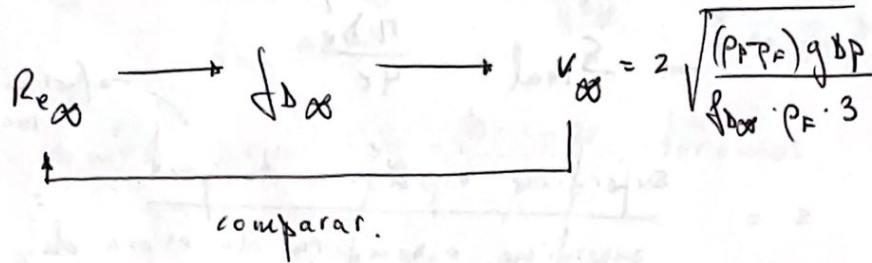 Re∞ → f_D∞ → v∞ = 2 √((ρp-ρF) g Dp / (f_D∞ · ρF · 3))
comparar.